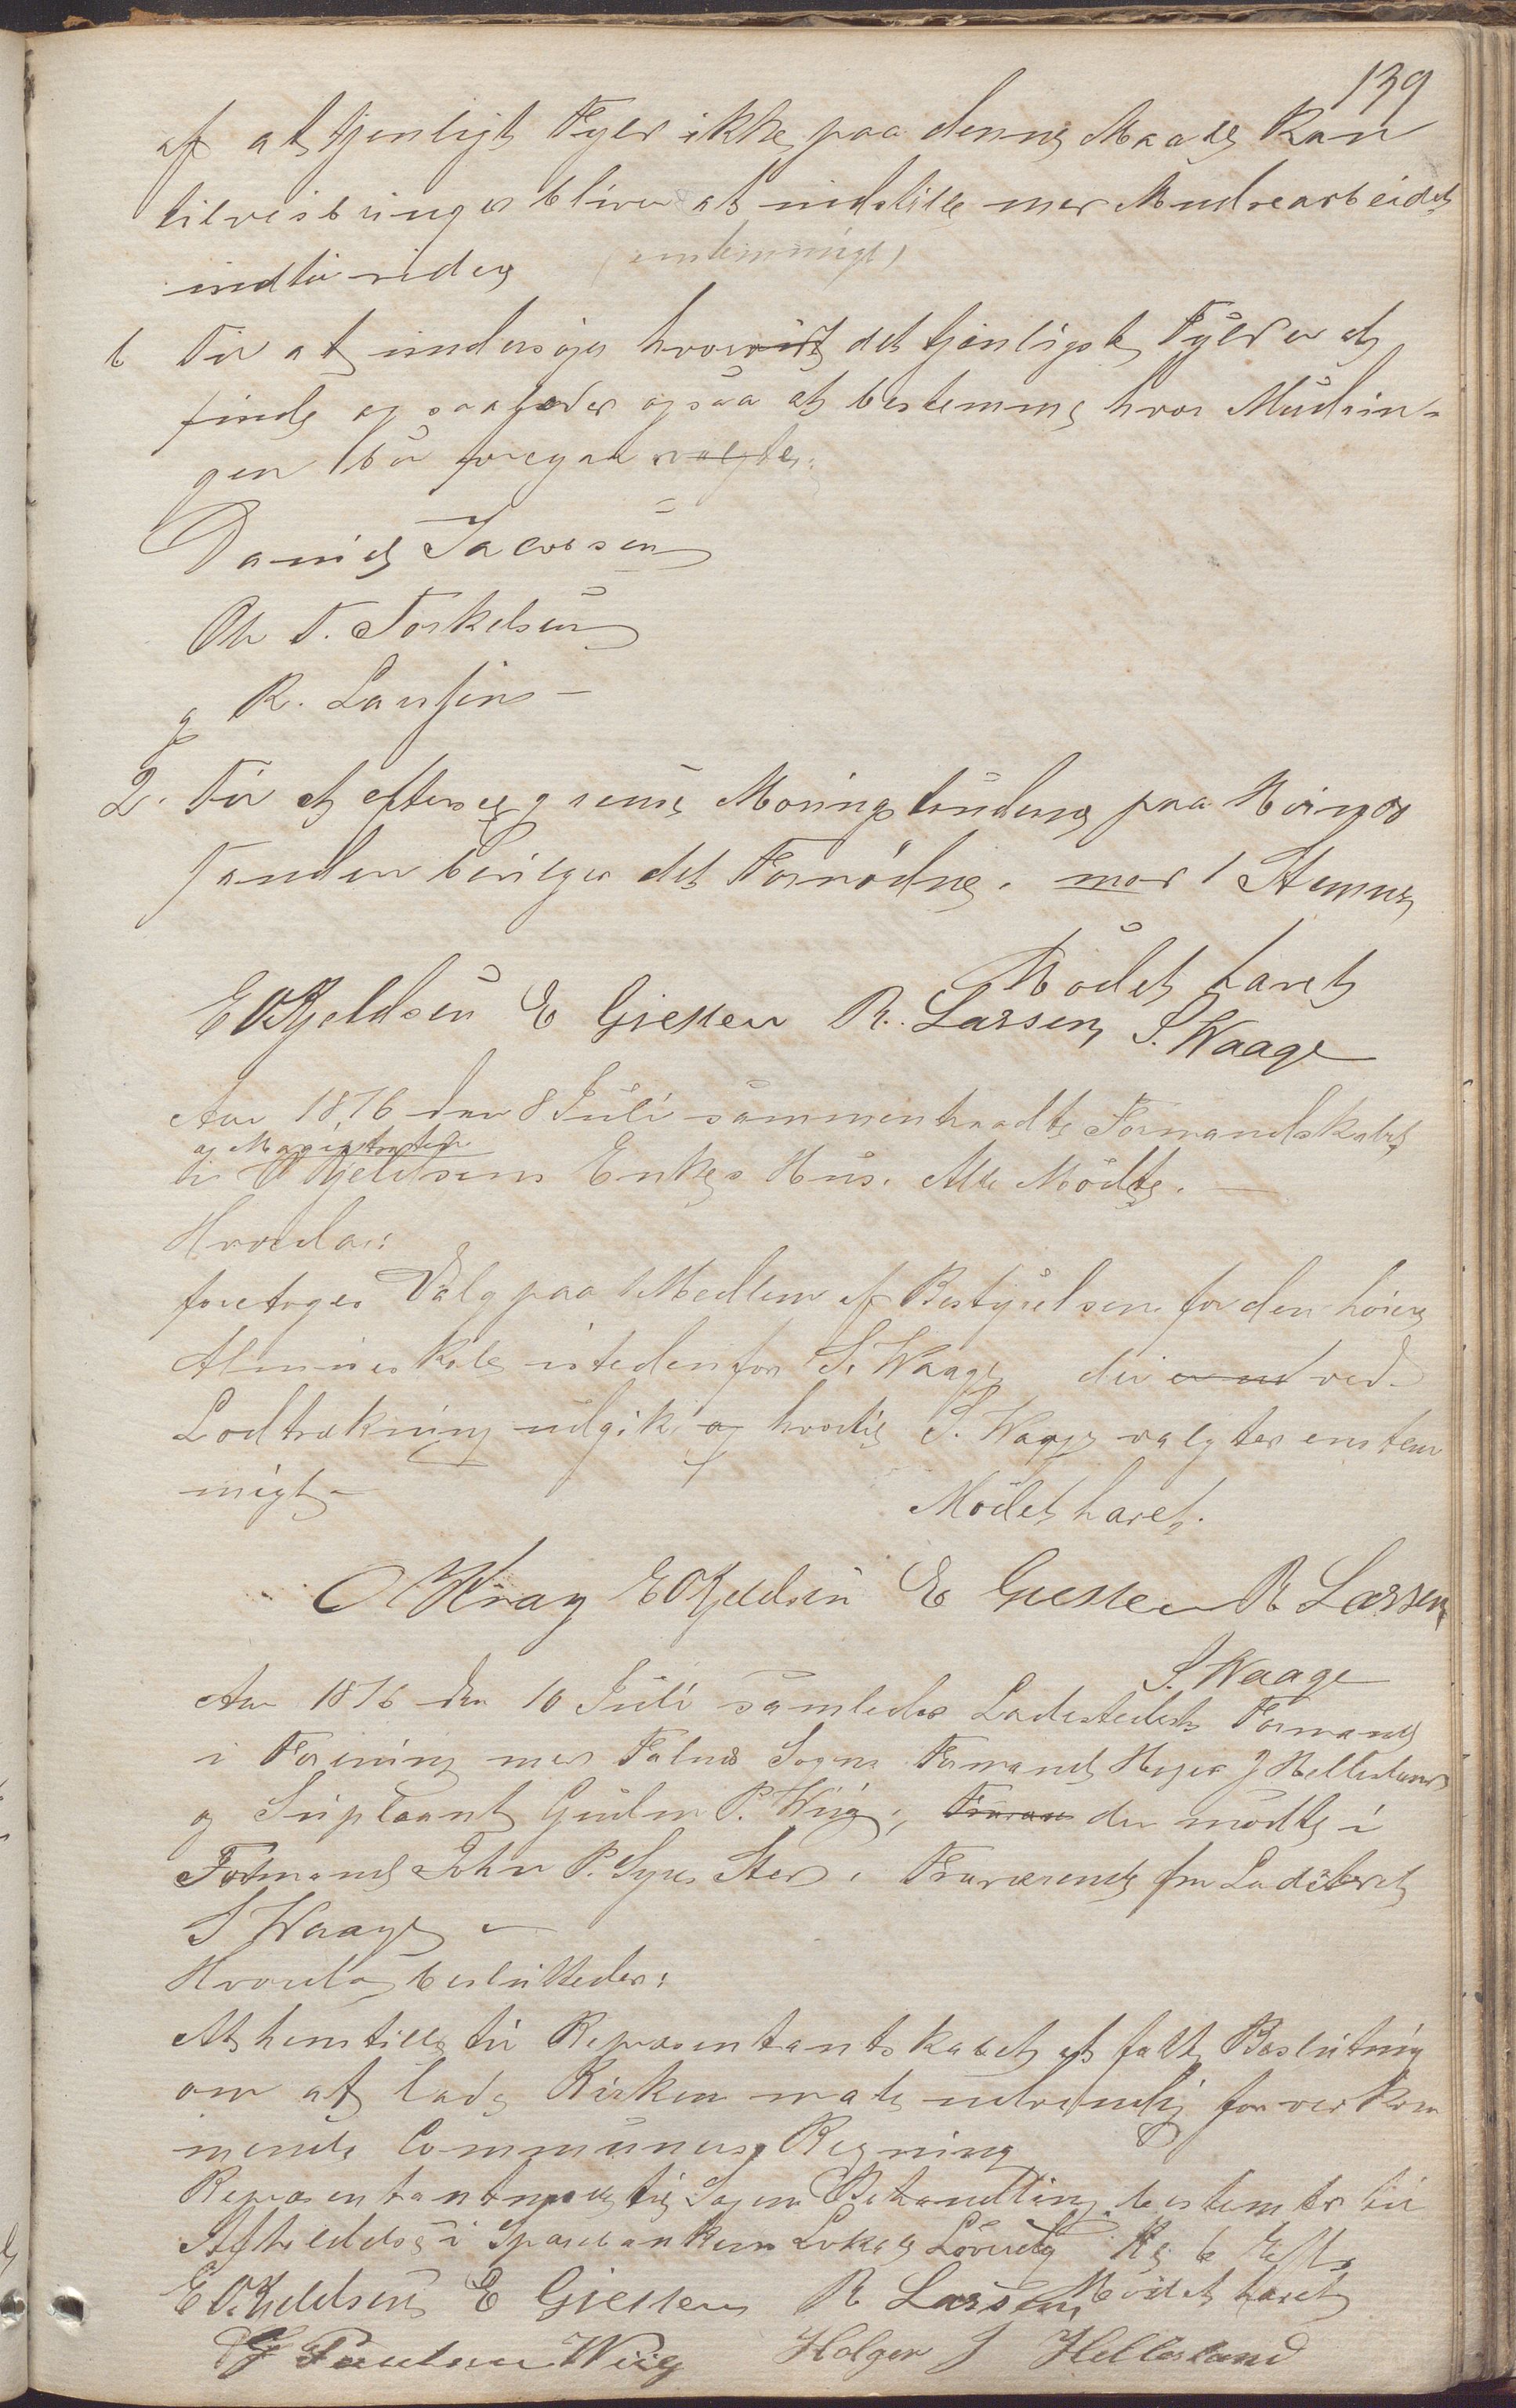 139
af at tjenligt Fyld ikke paa denne Maade kan
tilveiebringes bliver at indstille med Mudrearbeidet
indtil videre (enstemmigt)
b For at undersøge hvorvidt det tjenligste Fyld er at
finde og saaledes ogsaa at bestemme hvor Mudrin-
gen bør foregaa valgtes:
Daniel Jacobsen
Ole T. Torkelsen
og R. Larsen
2. For at efterse og rense Moringstønderne paa
bevilges det Fornødne. mod 1 Stemme
Mødet hævet
E OKjeldsen E Giessen R. Larsen S. Waage
Aar 1876 den 8 Juli sammentraadte Formandskabet
og Magistraten
i O Kjeldsens Enkes Hus. Alle Mødte.
Hvorda:
foretoges Valg paa 1 Medlem af Bestyrelsen for den høiere
Almueskole istedenfor S. Waage der ved
Lodtrækning udgik og hvortil S. Waage valgtes enstem
migt
Mødet hævet.
O Kray E OKjeldsen E Giessen R Larsen
S. Waage
Aar 1876 den 10 Juli samledes Ladestedets Formænd
i Forening med Sogns Formænd Holger J Hellesland
og Supleant Gudm P. Wiig, der mødte i
Formand John P. Sted. Fraværende fra Ladestedet
S Waage
Hvorda besluttedes:
At henstille til Repræsentantskabet at fatte Beslutning
om at lade Kirken male udvendig for vedkom
mende Communers Regning
Repræsentantmøde til Sagens Behandling bestemtes til
Afholdelse i Sparebankens Lokale Løverdag Kl 6 Eft.
Mødet hævet
E OKjeldsen E Giessen R Larsen
G Paulsen Wiig Holger J Hellesland